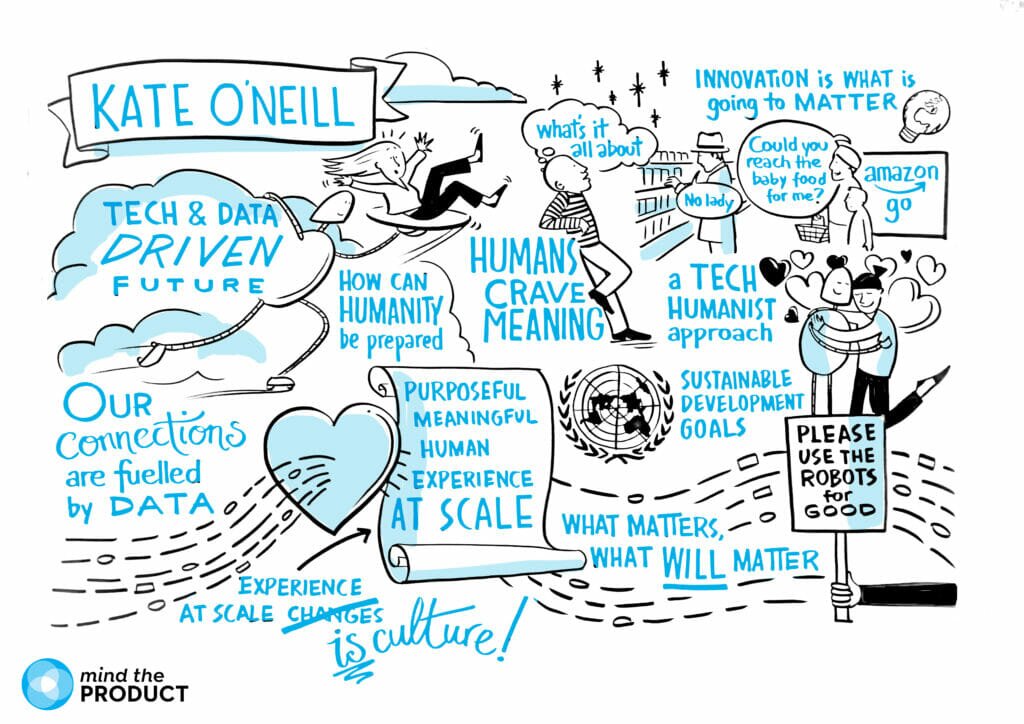 KATE O'NEILL
TECH & DATA
DRIVEN
FUTURE
HOW CAN
HUMANITY
be prepared
what's it
all about
HUMANS
CRAVE
MEANING
INNOVATION is WHAT is
going to MATTER
No lady
Could you
reach the
baby food
for me?
amazon
go
a TECH
HUMANIST
approach
OUR
connections
are fuelled
by DATA
PURPOSEFUL
MEANINGFUL
HUMAN
EXPERIENCE
AT SCALE
SUSTAINABLE
DEVELOPMENT
GOALS
PLEASE
USE THE
ROBOTS
for
GOOD
WHAT MATTERS,
WHAT WILL MATTER
EXPERIENCE
AT SCALE CHANGES
is culture!
mind the
PRODUCT